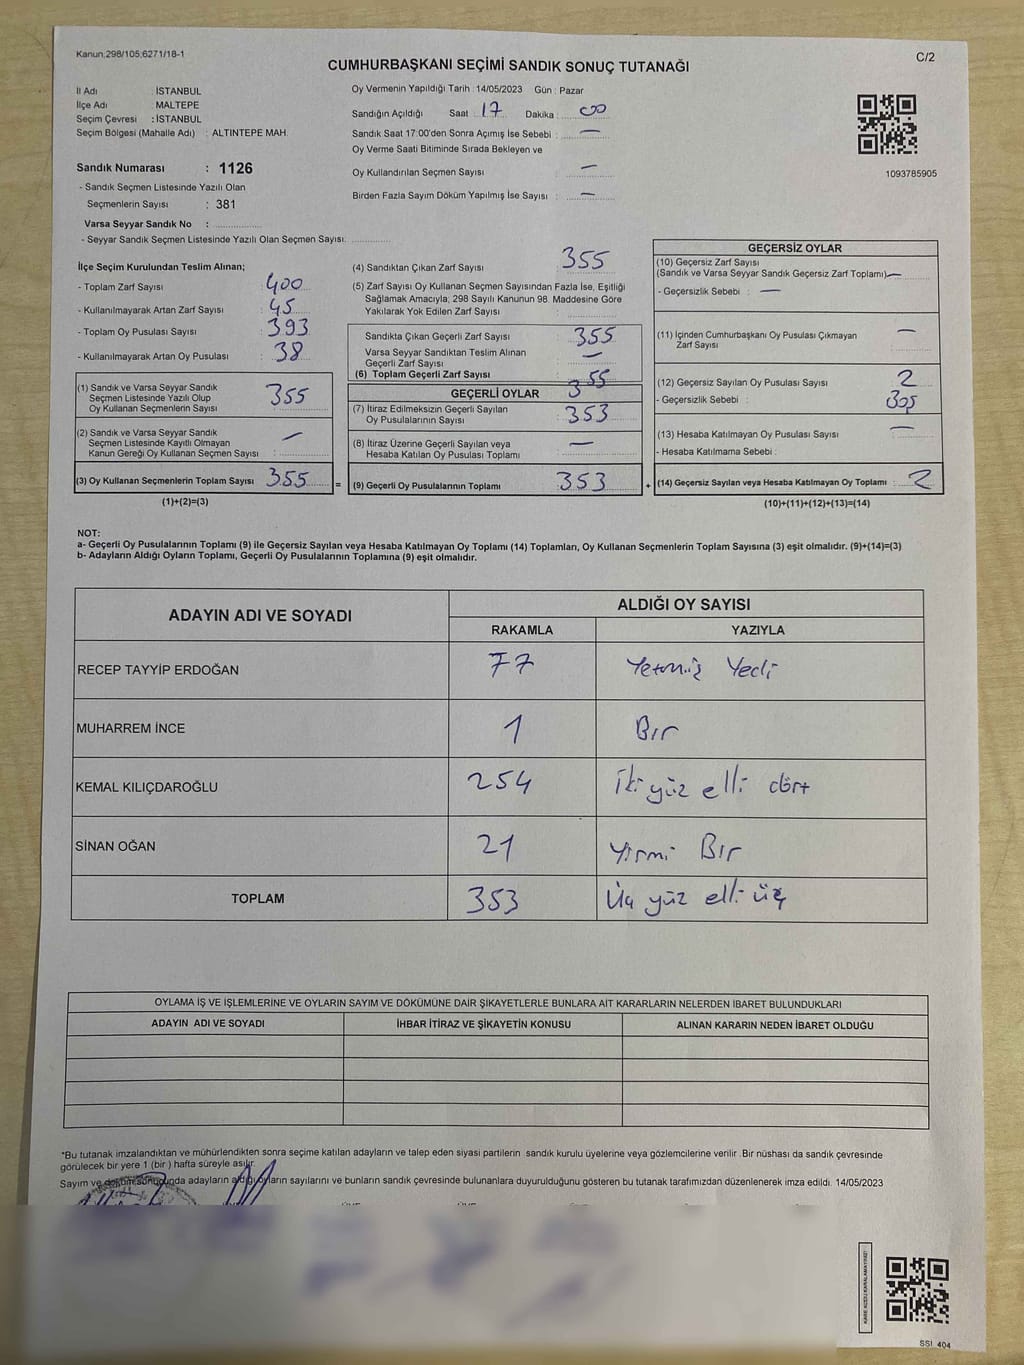 Kanun:298/105;6271/18-1
C/2
CUMHURBAŞKANI SEÇİMİ SANDIK SONUÇ TUTANAĞI
İl Adı : İSTANBUL
İlçe Adı : MALTEPE
Seçim Çevresi : İSTANBUL
Seçim Bölgesi (Mahalle Adı) : ALTINTEPE MAH.
Sandık Numarası : 1126
- Sandık Seçmen Listesinde Yazılı Olan
Seçmenlerin Sayısı : 381
Varsa Seyyar Sandık No :
- Seyyar Sandık Seçmen Listesinde Yazılı Olan Seçmen Sayısı:
Oy Vermenin Yapıldığı Tarih : 14/05/2023 Gün : Pazar
Sandığın Açıldığı Saat 17 Dakika : 00
Sandık Saat 17:00'den Sonra Açımış İse Sebebi : —
Oy Verme Saati Bitiminde Sırada Bekleyen ve
Oy Kullandırılan Seçmen Sayısı : —
Birden Fazla Sayım Döküm Yapılmış İse Sayısı : —
1093785905
İlçe Seçim Kurulundan Teslim Alınan;
- Toplam Zarf Sayısı : 400
- Kullanılmayarak Artan Zarf Sayısı : 45
- Toplam Oy Pusulası Sayısı : 393
- Kullanılmayarak Artan Oy Pusulası : 38
(1) Sandık ve Varsa Seyyar Sandık
Seçmen Listesinde Yazılı Olup
Oy Kullanan Seçmenlerin Sayısı : 355
(2) Sandık ve Varsa Seyyar Sandık
Seçmen Listesinde Kayıtlı Olmayan
Kanun Gereği Oy Kullanan Seçmen Sayısı : —
(3) Oy Kullanan Seçmenlerin Toplam Sayısı : 355
(1)+(2)=(3)
=
(4) Sandıktan Çıkan Zarf Sayısı : 355
(5) Zarf Sayısı Oy Kullanan Seçmen Sayısından Fazla İse, Eşitliği
Sağlamak Amacıyla; 298 Sayılı Kanunun 98. Maddesine Göre
Yakılarak Yok Edilen Zarf Sayısı :
Sandıkta Çıkan Geçerli Zarf Sayısı : 355
Varsa Seyyar Sandıktan Teslim Alınan
Geçerli Zarf Sayısı : —
(6) Toplam Geçerli Zarf Sayısı : 355
GEÇERLİ OYLAR
(7) İtiraz Edilmeksizin Geçerli Sayılan
Oy Pusulalarının Sayısı : 353
(8) İtiraz Üzerine Geçerli Sayılan veya
Hesaba Katılan Oy Pusulası Toplamı : —
(9) Geçerli Oy Pusulalarının Toplamı : 353
+
GEÇERSİZ OYLAR
(10) Geçersiz Zarf Sayısı
(Sandık ve Varsa Seyyar Sandık Geçersiz Zarf Toplamı) —
- Geçersizlik Sebebi : —
(11) İçinden Cumhurbaşkanı Oy Pusulası Çıkmayan
Zarf Sayısı : —
(12) Geçersiz Sayılan Oy Pusulası Sayısı : 2
- Geçersizlik Sebebi : Boş
(13) Hesaba Katılmayan Oy Pusulası Sayısı : —
- Hesaba Katılmama Sebebi :
(14) Geçersiz Sayılan veya Hesaba Katılmayan Oy Toplamı : 2
(10)+(11)+(12)+(13)=(14)
NOT:
a- Geçerli Oy Pusulalarının Toplamı (9) ile Geçersiz Sayılan veya Hesaba Katılmayan Oy Toplamı (14) Toplamları, Oy Kullanan Seçmenlerin Toplam Sayısına (3) eşit olmalıdır. (9)+(14)=(3)
b- Adayların Aldığı Oyların Toplamı, Geçerli Oy Pusulalarının Toplamına (9) eşit olmalıdır.
ADAYIN ADI VE SOYADI
ALDIĞI OY SAYISI
RAKAMLA YAZIYLA
RECEP TAYYİP ERDOĞAN 77 Yetmiş Yedi
MUHARREM İNCE 1 Bir
KEMAL KILIÇDAROĞLU 254 İki yüz elli dört
SİNAN OĞAN 21 Yirmi Bir
TOPLAM 353 Üç yüz elli üç
OYLAMA İŞ VE İŞLEMLERİNE VE OYLARIN SAYIM VE DÖKÜMÜNE DAİR ŞİKAYETLERLE BUNLARA AİT KARARLARIN NELERDEN İBARET BULUNDUKLARI
ADAYIN ADI VE SOYADI İHBAR İTİRAZ VE ŞİKAYETİN KONUSU ALINAN KARARIN NEDEN İBARET OLDUĞU
*Bu tutanak imzalandıktan ve mühürlendikten sonra seçime katılan adayların ve talep eden siyasi partilerin sandık kurulu üyelerine veya gözlemcilerine verilir .Bir nüshası da sandık çevresinde
görülecek bir yere 1 (bir ) hafta süreyle asılır.
Sayım ve döküm sonucunda adayların aldığı oyların sayılarını ve bunların sandık çevresinde bulunanlara duyurulduğunu gösteren bu tutanak tarafımızdan düzenlenerek imza edildi. 14/05/2023
KARE KODU KARALAMAYINIZ!
SSİ 404